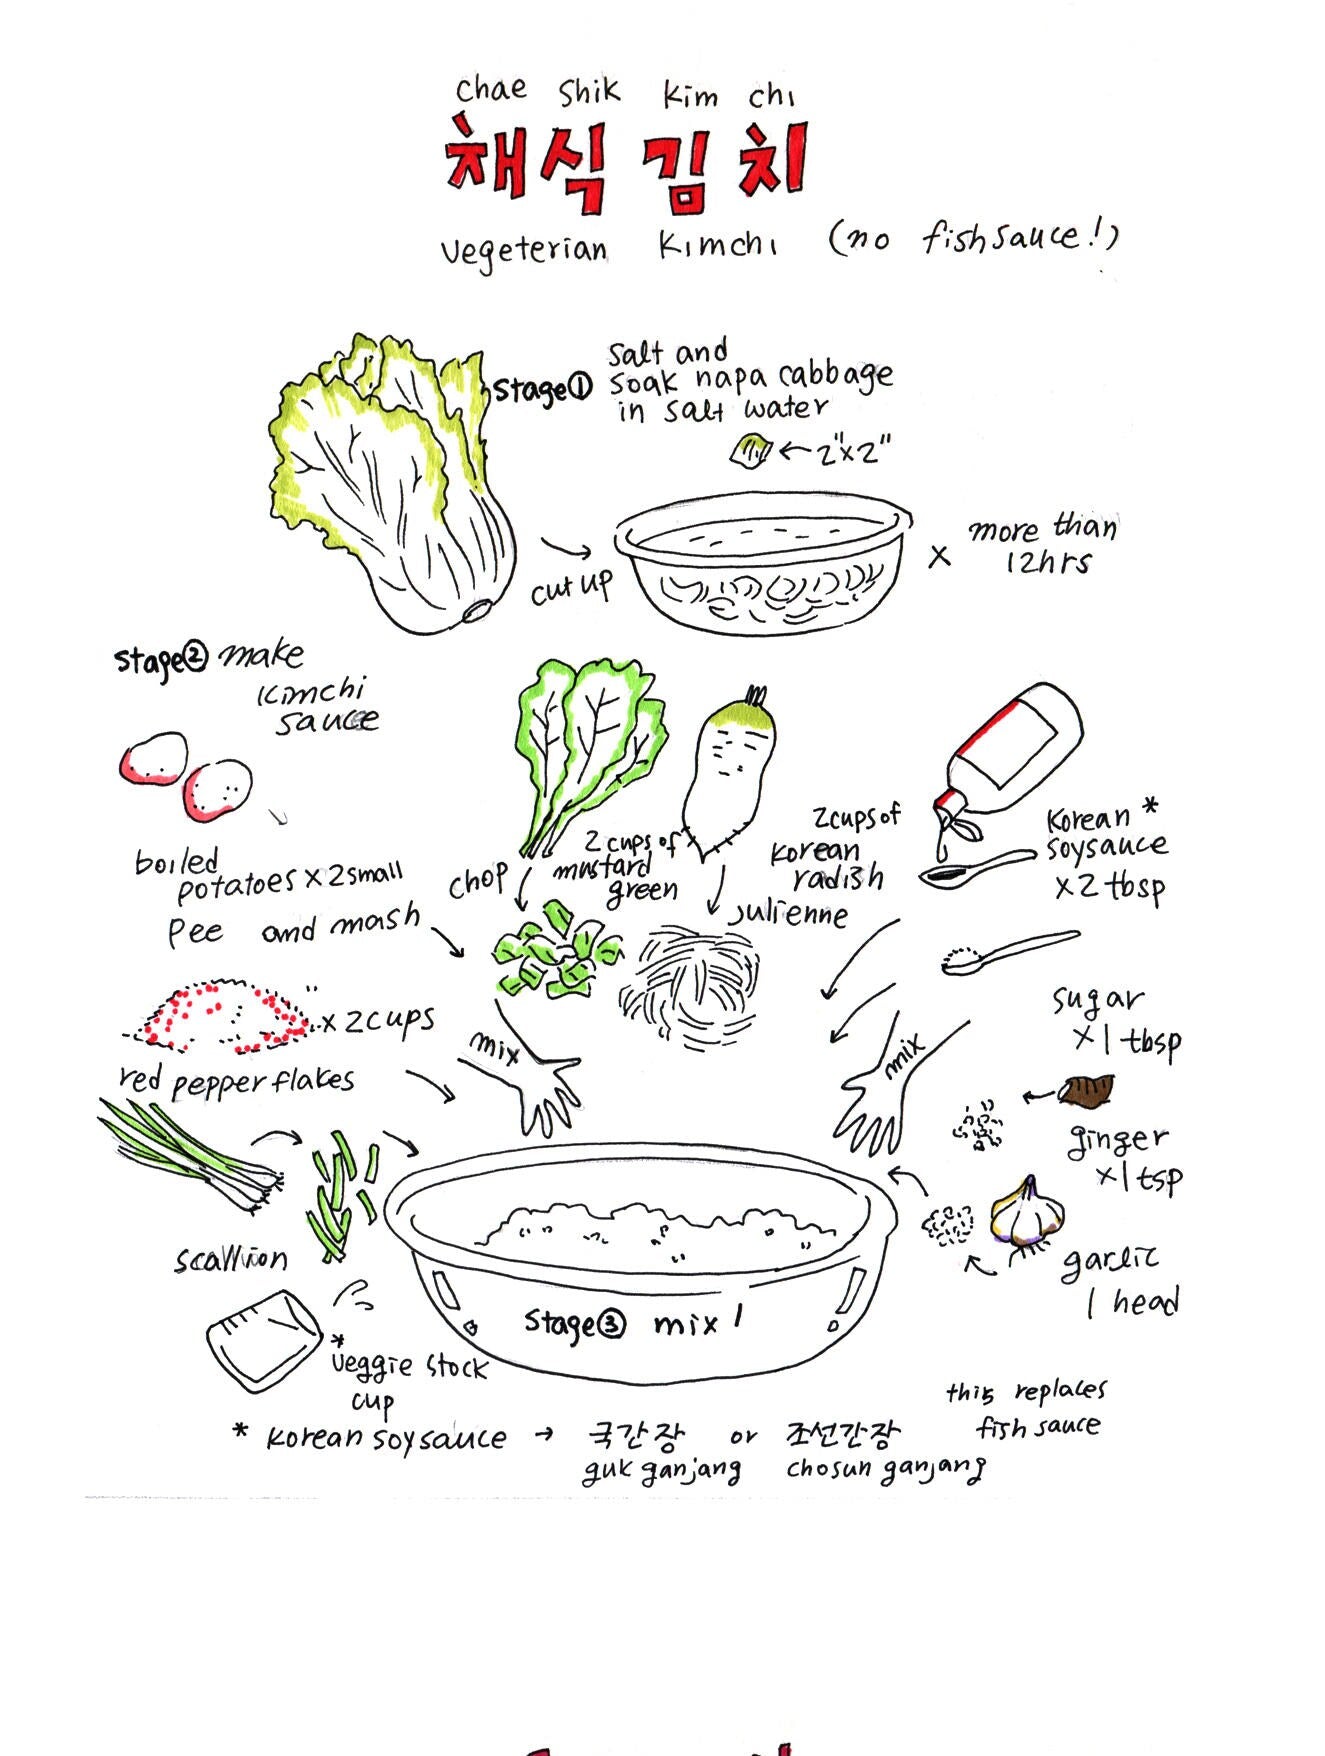 chae shik kim chi
채식 김치
vegeterian kimchi (no fishsauce!)
stage① salt and
soak napa cabbage
in salt water
←2"x2"
cut up
x more than
12hrs
stage② make
kimchi
sauce
boiled
potatoes x 2 small
Pee and mash
x 2 cups
red pepper flakes
scallion
*
veggie stock
cup
chop
2 cups of
mustard
green
2 cups of
korean
radish
julienne
korean *
soysauce
x 2 tbsp
sugar
x 1 tbsp
ginger
x 1 tsp
garlic
1 head
mix
mix
stage③ mix!
this replaces
fish sauce
* korean soysauce → 국간장 or 조선간장
guk ganjang chosun ganjang